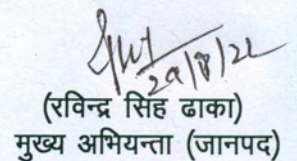 29/8/22
(रविन्द्र सिंह ढाका)
मुख्य अभियन्ता (जानपद)